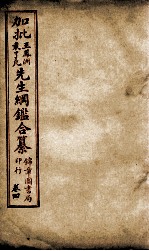 加批王鳳洲袁了凡先生綱鑑合纂
錦章圖書局印行
卷四